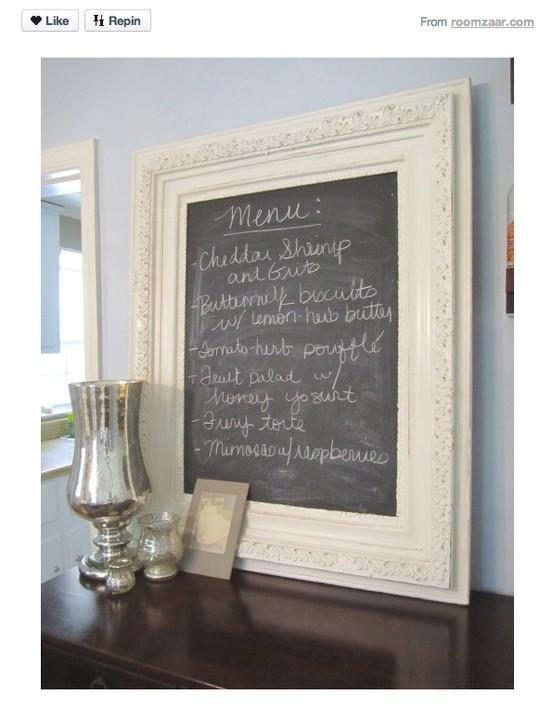 Like Repin From roomzaar.com
Menu:
- Cheddar Shrimp
and Grits
- Buttermilk biscuits
w/ lemon-herb butter
- Tomato-herb souffle
- Fruit salad w/
honey yogurt
- torte
- Mimosas w/raspberries